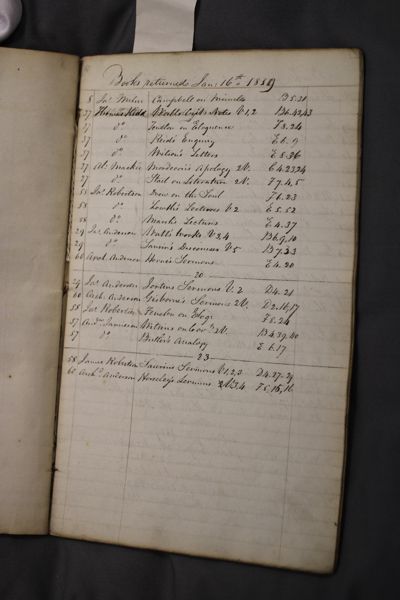 Books returned Jan: 16th 1859
8 Jas. Milne Campbell on Miracles B5.31
37 Thomas Kidd Works V.1,2 B6.42,43
37 Do. on Eloquence F3.24
37 Do. Reid's Enquiry E6.9
37 Do. Letters E5.36
27 Alr. Mackie Apology 2V. C4.23,24
27 Do. on Literature 2V. F7.4,5
58 Jas. Robertson Drew on the Soul F6.23
58 Do. Lowth's Lectures V.2 E5.52
58 Do. Marsh's Lectures E4.37
29 Jas. Anderson Hall's Works V.3,4 B6.9,10
29 Do. Saurin's Discourses V.5 B7.33
60 Archd. Anderson Horne's Sermons E4.20
20
29 Jas. Anderson Jortin's Sermons V.2 D4.21
60 Arch. Anderson Gisborne's Sermons 2V. D2.16,17
58 Jas. Robertson Fenelon on Eloqe. F5.24
37 Andw. Jamieson Witsius on Covts. 2V. B4.39,40
37 Do. Butler's Analogy E6.17
23
58 James Robertson Saurin's Sermons V.1,2,3 D4.27-29
60 Archd. Anderson Horsley's Sermons 2V.3,4 F5.15,16